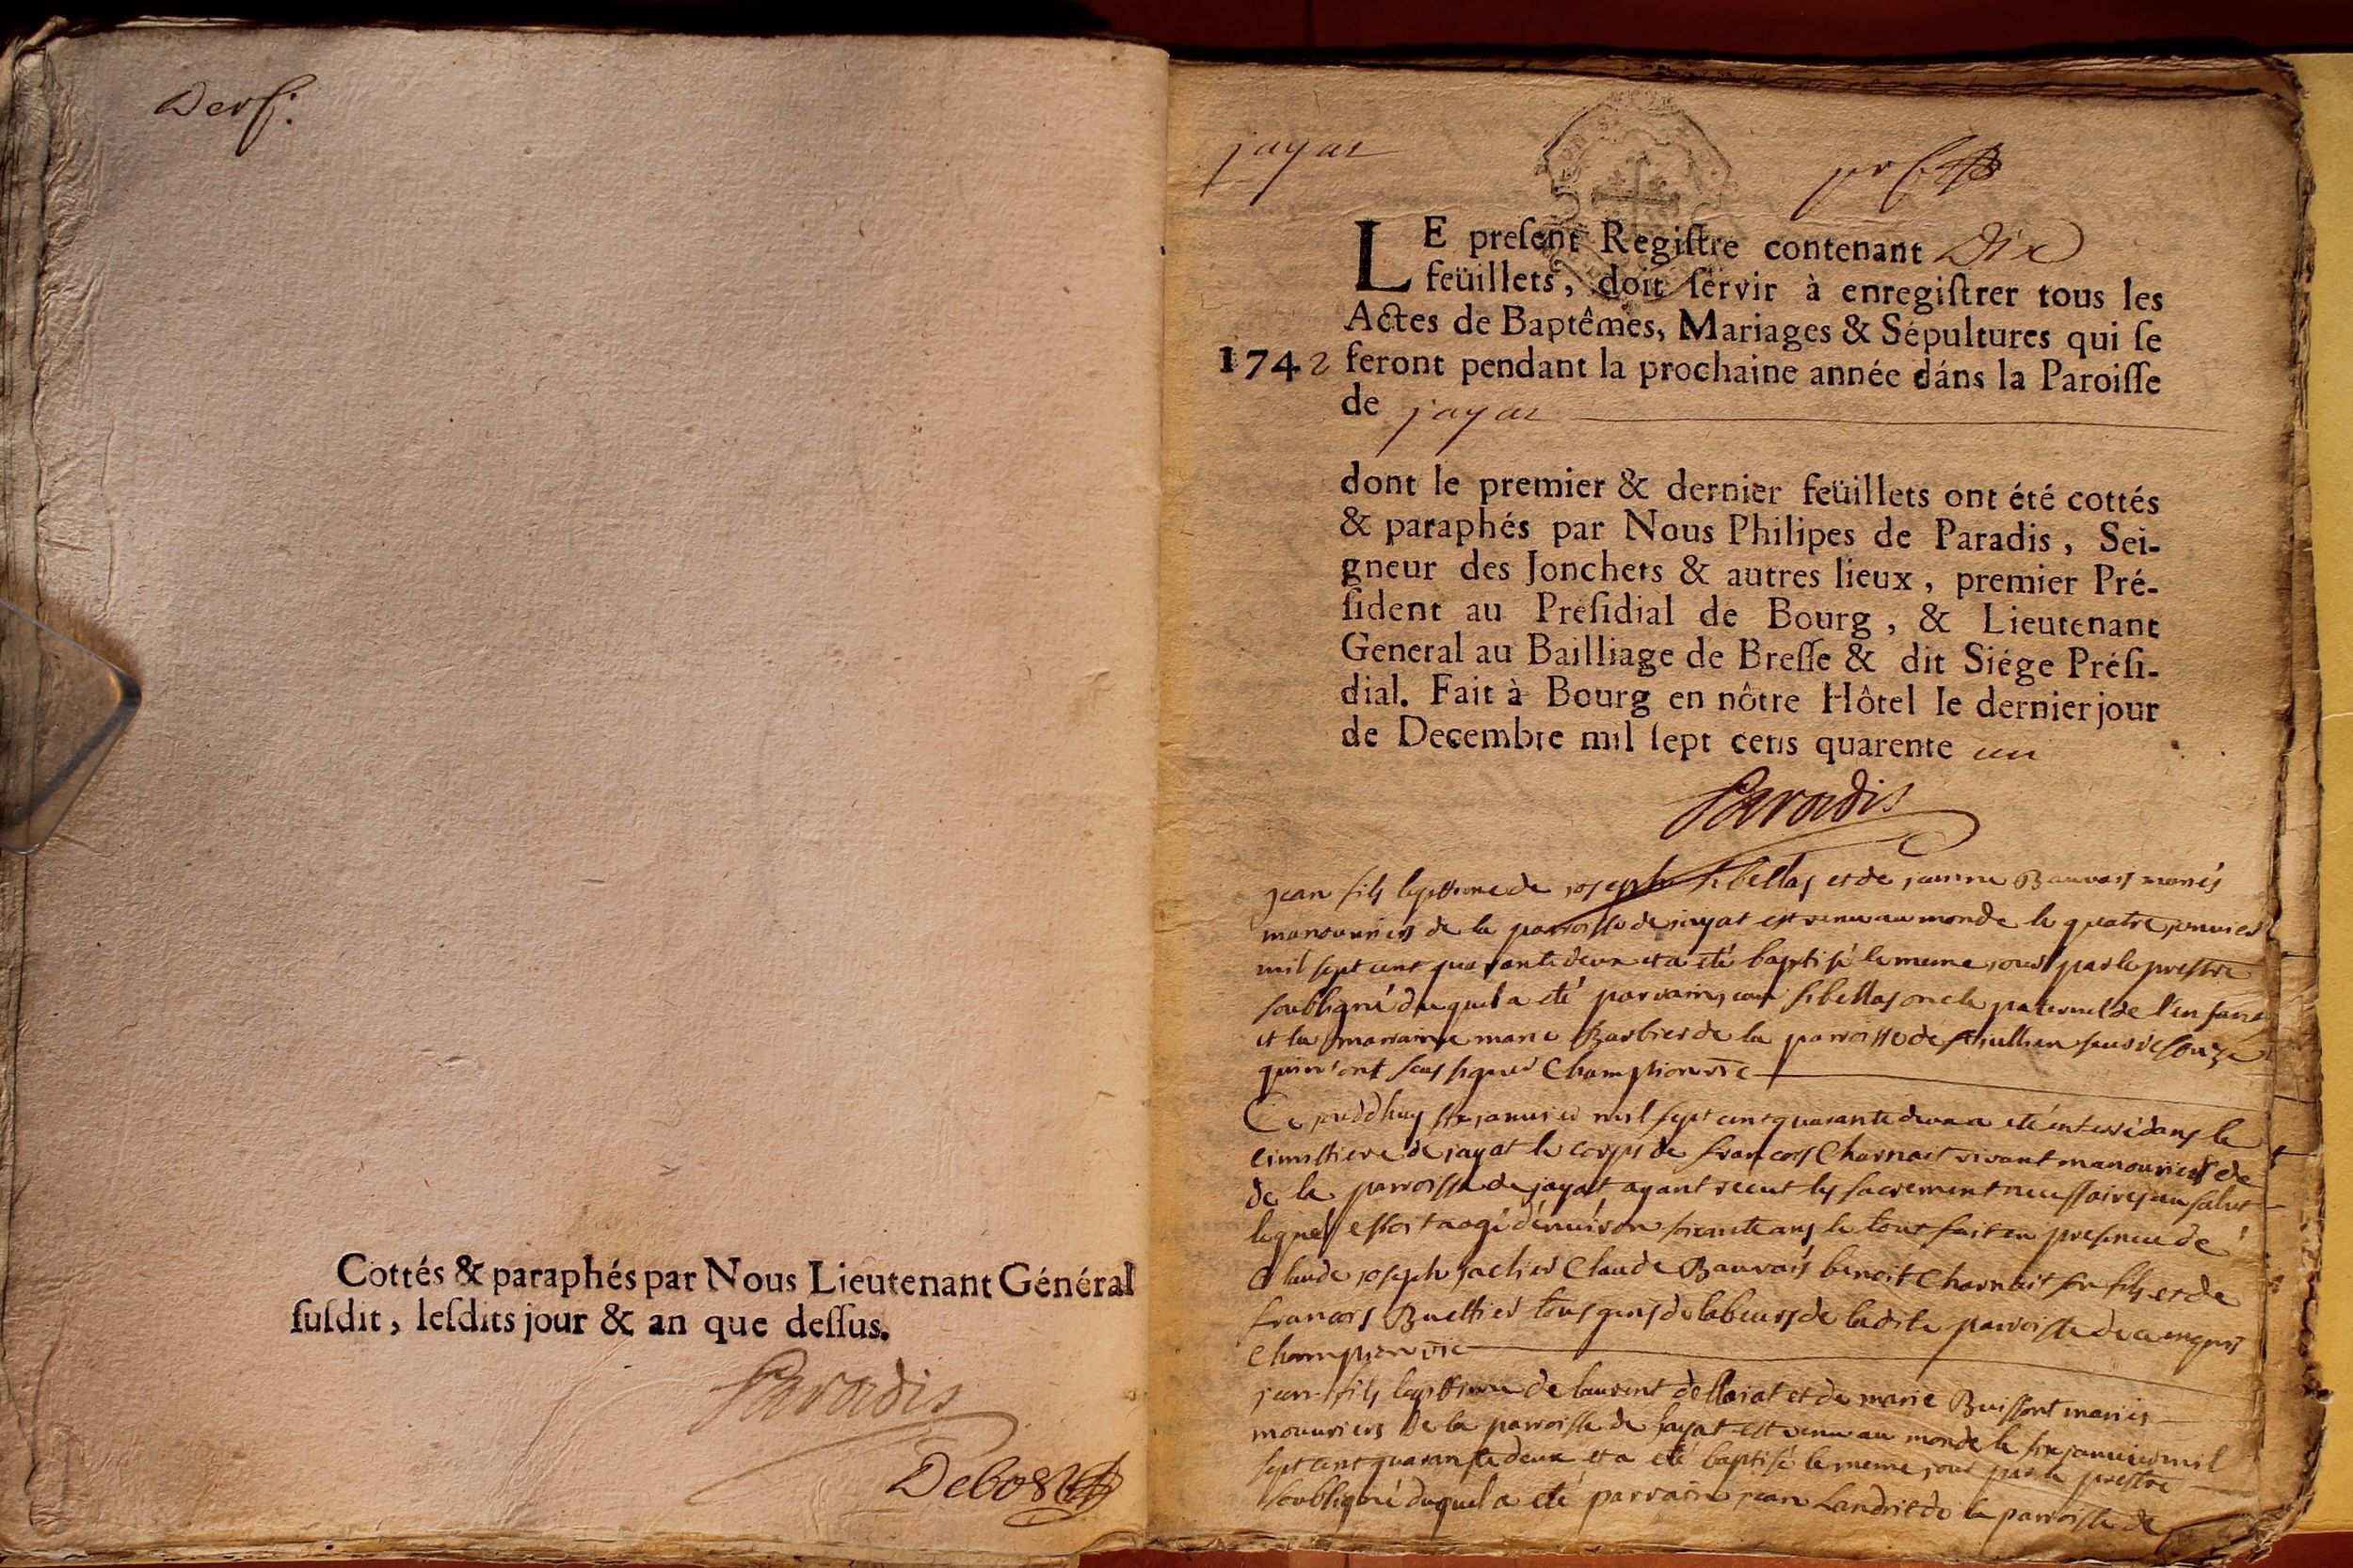 Derf:
Cottés & paraphés par Nous Lieutenant Général
ſuſdit, leſdits jour & an que deſſus.
Paradis
Debost
jayat
1742
LE preſent Regiſtre contenant Dix
feüillets, doit ſervir à enregiſtrer tous les
Actes de Baptêmes, Mariages & Sépultures qui ſe
feront pendant la prochaine année dáns la Paroiſſe
de jayat
dont le premier & dernier feüillets ont été cottés
& paraphés par Nous Philipes de Paradis, Sei-
gneur des Jonchers & autres lieux, premier Pré-
ſident au Preſidial de Bourg, & Lieutenant
General au Bailliage de Breſſe & dit Siége Préſi-
dial. Fait à Bourg en nôtre Hôtel le dernier jour
de Decembre mil ſept cens quarente un
Paradis
jean fils legittime de joseph sibellas et de jeanne Bauvais mariés
manouvriers de la parroisse de jayat est venu au monde le quatre janvier
mil sept cent quarante deux et a eté baptisé le meme jour par le prestre
soubsigné duquel a eté parrain jean sibellas oncle paternel de l'enfant
et la marraine marie Barbier de la parroisse de st jullien sur resouze
qui n'ont sceu signer Champion vic
Ce jourdhuy six janvier mil sept cent quarante deux a eté enterré dans le
cimistiere de jayat le corps de francois Charnait vivant manouvrier de
de la parroisse de jayat ayant receut les sacrement necessaires au salut
lequel estoit aagé d'environ soixante ans le tout fait en presence de
Claude joseph Claude Bauvais benoit Charnait son fils et de
francois Buettier tous gens de labeurs de ladite parroisse de ce enquis
Champion vic
jean fils legittime de laurent dellorat et de marie Buissont mariés
mouvriers de la parroisse de jayat est venu au monde le six janvier mil
sept cent quarante deux et a eté baptisé le meme jour par le prestre
soubsigné duquel a eté parrain jean Landrit de la parroisse de